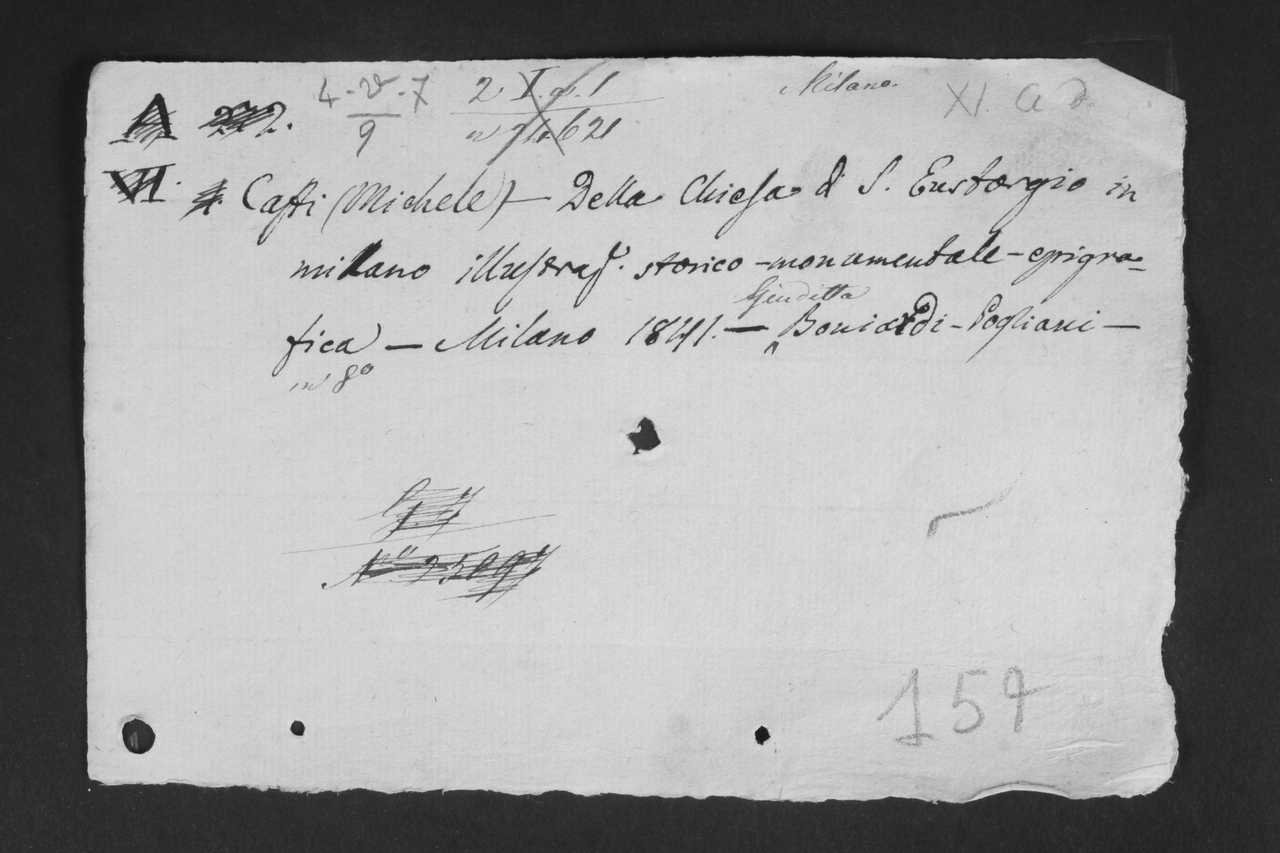 Milano.
XI. a d.
4 - 28 - 7
9
621
Caffi (Michele) — Della Chiesa di S. Eustorgio in
milano illustraz. storico - monumentale - epigra-
fica — Milano 1841. — Giuditta Boniardi - Pogliani —
in 8º
159